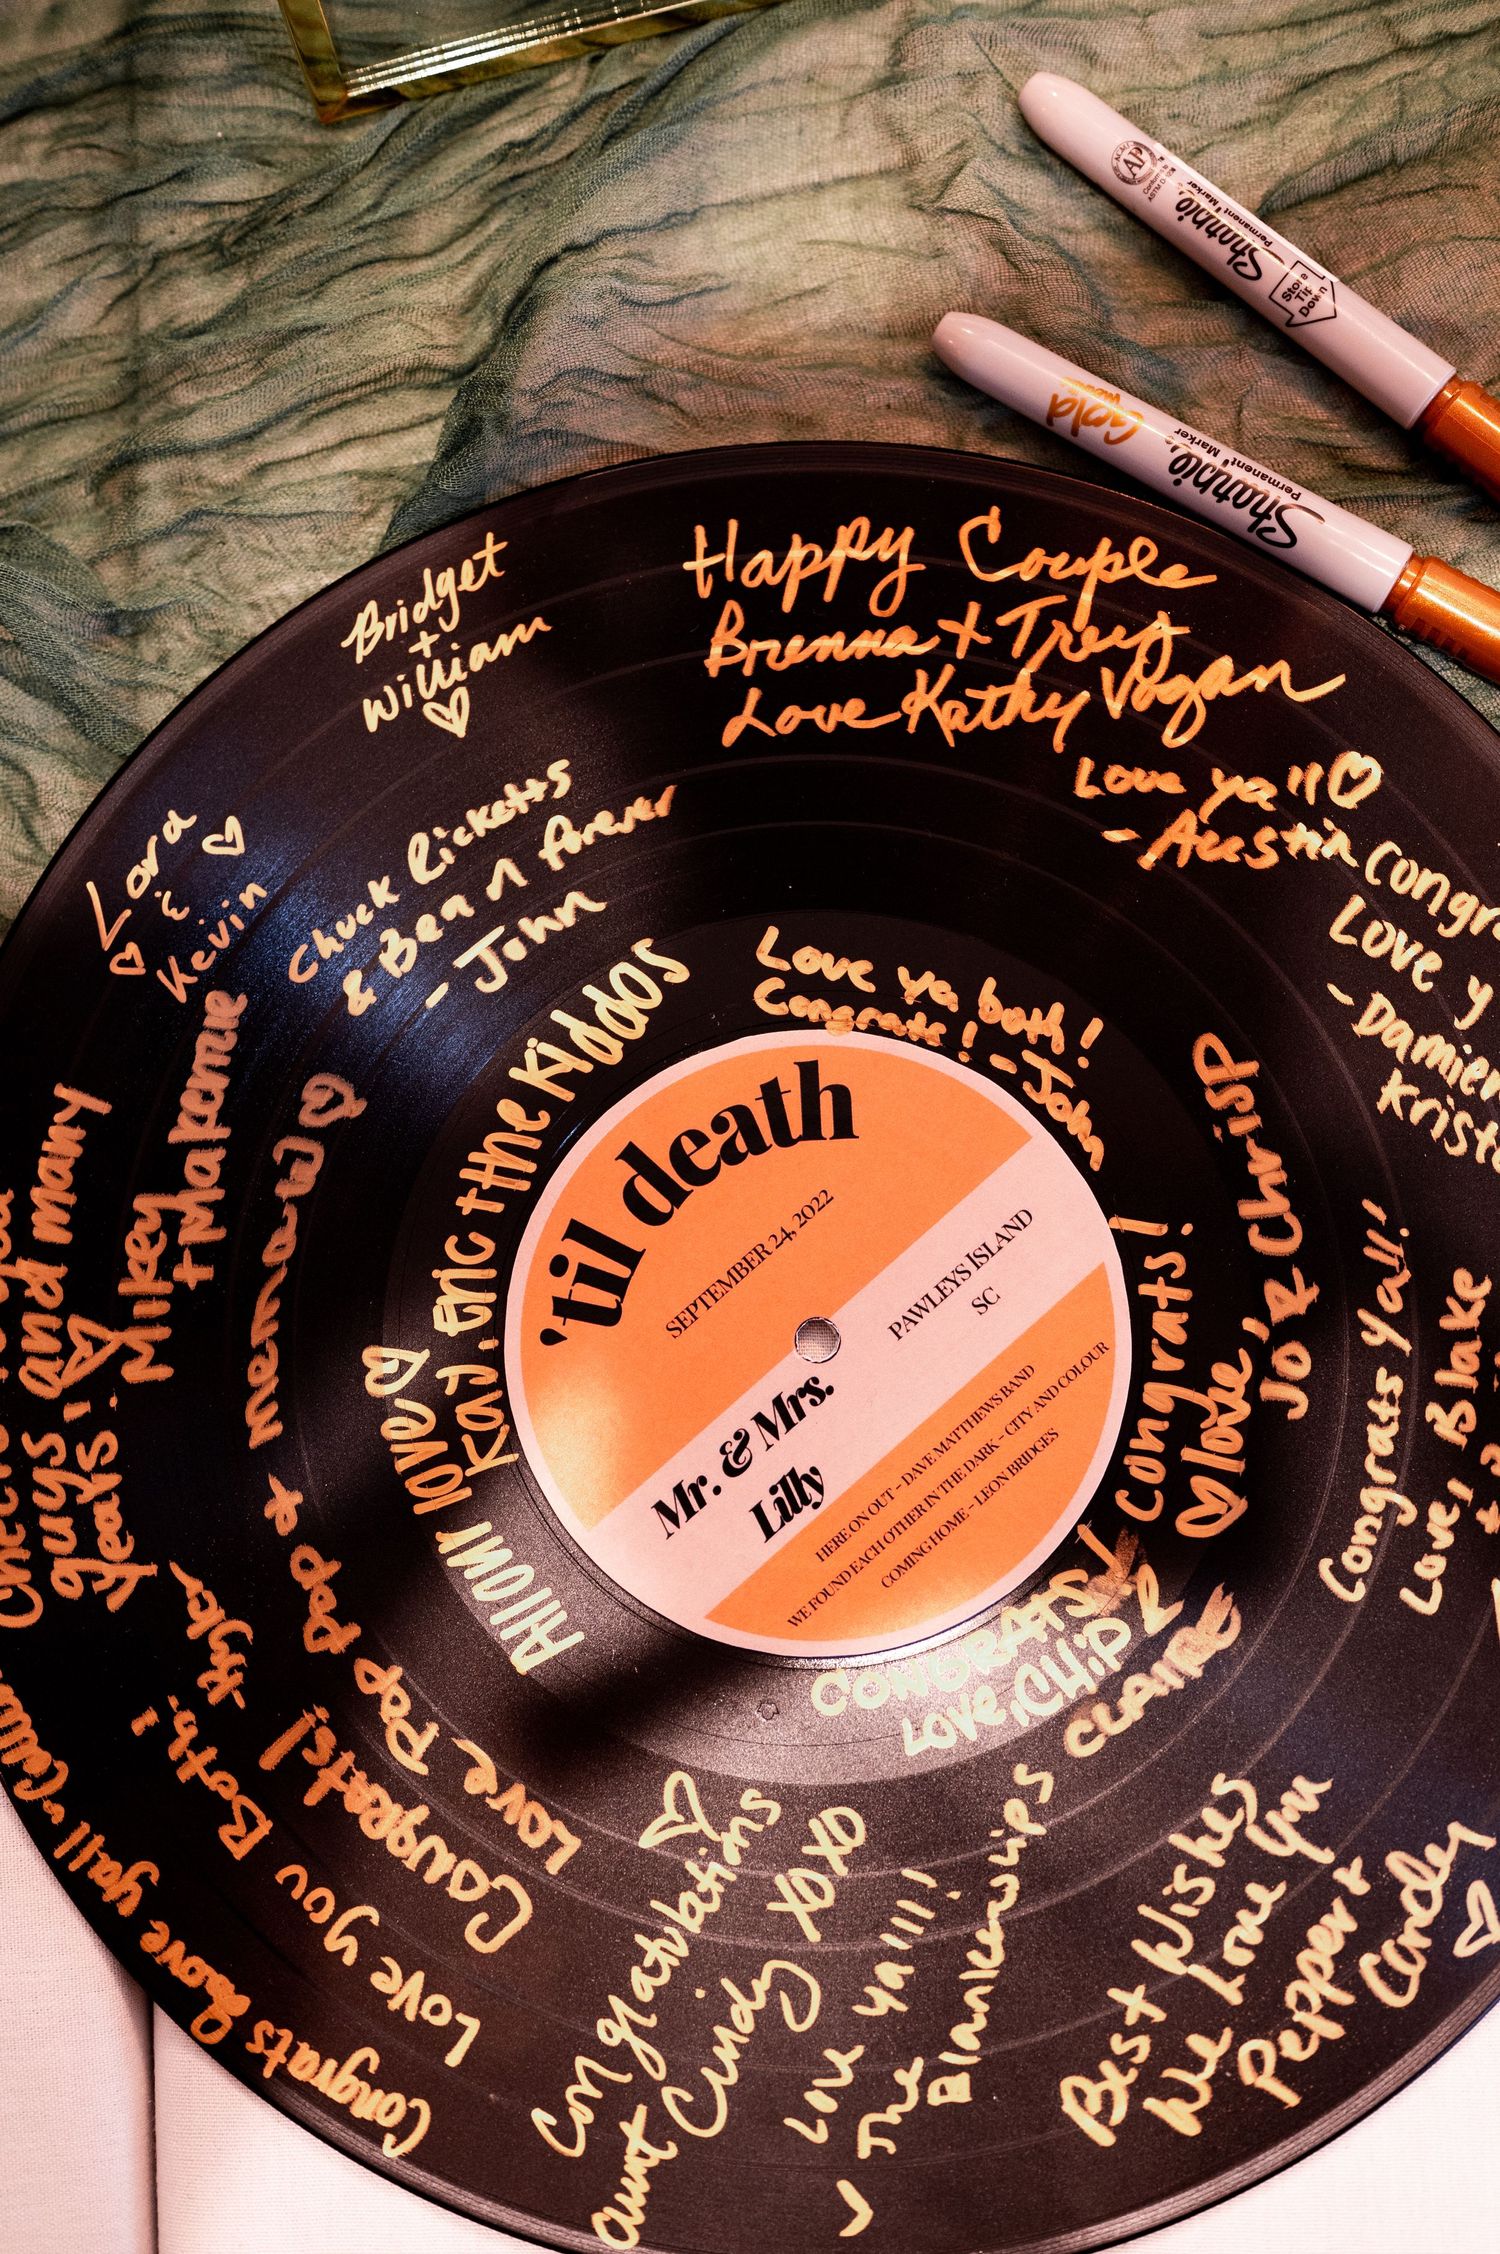 Sharpie
Permanent Marker
Store
Tip
Down
AP
Sharpie
Permanent Marker
Gold
Bridget
+
William
Happy Couple
Brenna + Trey
Love Kathy Vogan
Love ya'll
- Austin
Congra
Love y
- Damien
Krist
Lora
&
Kevin
Chuck Ricketts
& Bean forever
- John
Love ya both!
Congrats! - John
All our love
Kaj, Eric + the Kiddos
Mikey
+ Makenna
and many
guys
years!
Congrats!
Love Pop Pop + memaw
Love you Both!
- Kyler
Congrats Love yall
Congrats!
Love,
Jo & Chrisp
Congrats Yall!
Love, Blake
CONGRATS!
LOVE, CHIP &
CLAIRE
Congratulations
Aunt Cindy XOXO
Love ya'll!
The Blankenships
Best Wishes
We Love You
Pepper +
Corder
'til death
SEPTEMBER 24, 2022
PAWLEYS ISLAND
SC
Mr. & Mrs.
Lilly
HERE ON OUT - DAVE MATTHEWS BAND
WE FOUND EACH OTHER IN THE DARK - CITY AND COLOUR
COMING HOME - LEON BRIDGES